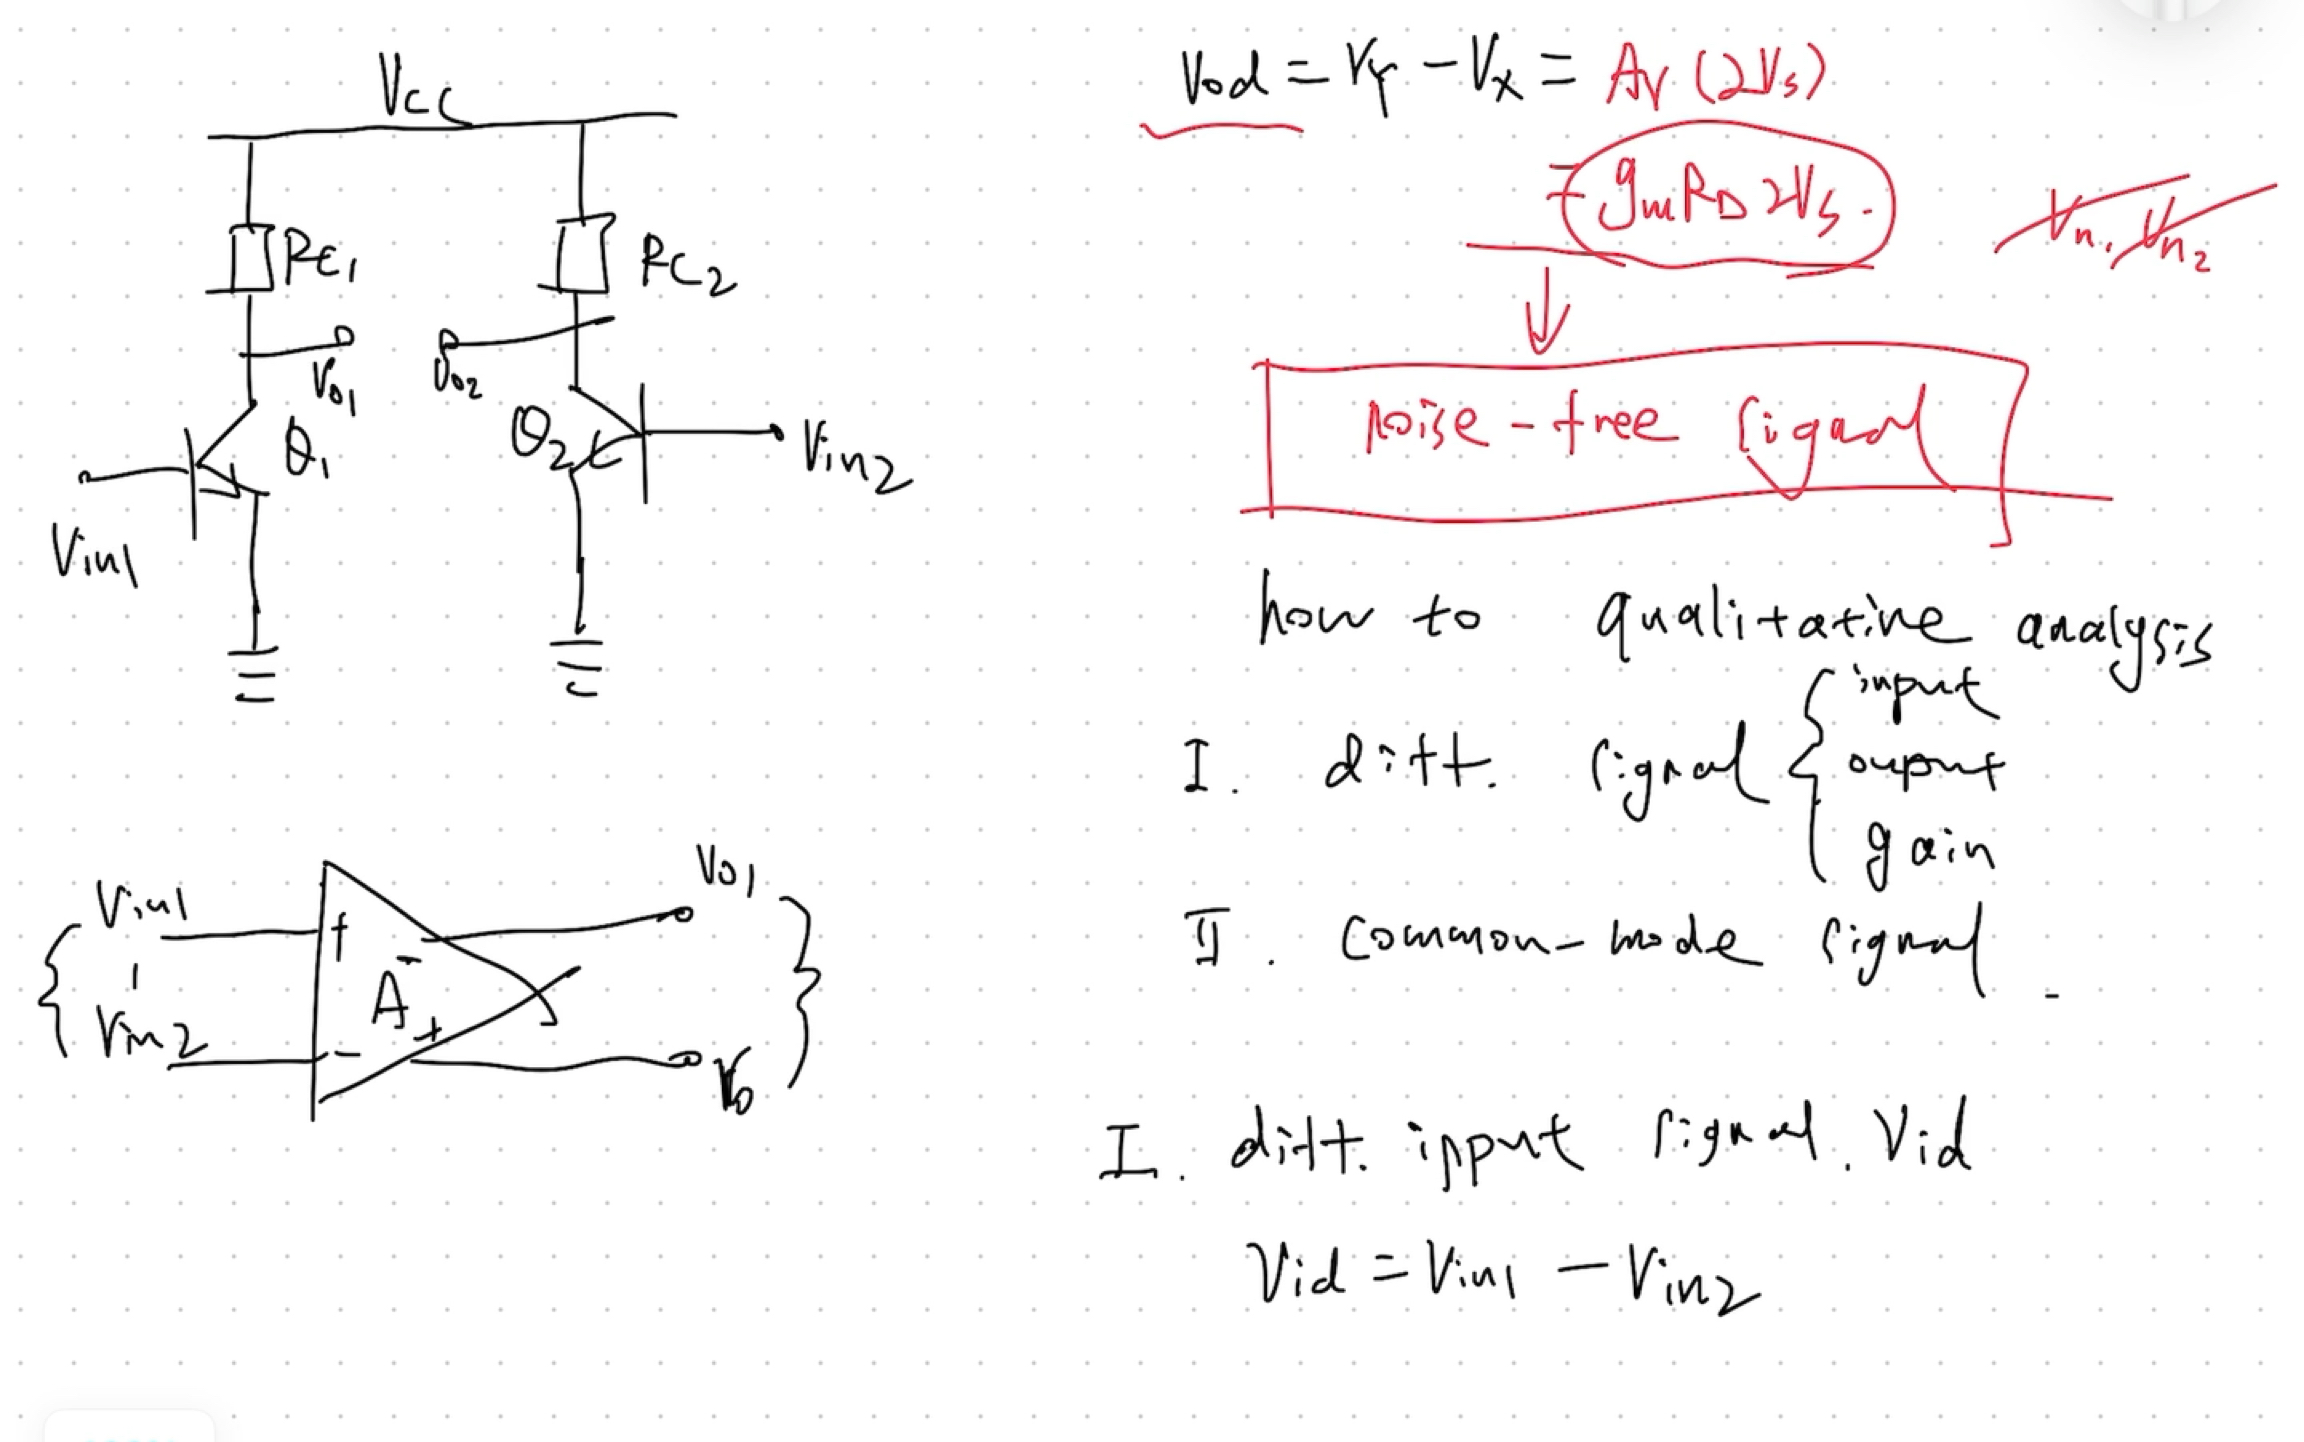 Vcc
RC1
RC2
Vo1
Vo2
Q1
Q2
Vin1
Vin2
Vin1
+
-
A
Vin2
-
+
Vo1
Vo
Vod = VY - VX = Av (2Vs)
= gmRD 2Vs.
Vn1 Vn2
noise-free signal
how to qualitative analysis
I. diff. signal { input
ouput
gain
II. Common-mode signal
I. diff. input signal. Vid
Vid = Vin1 - Vin2